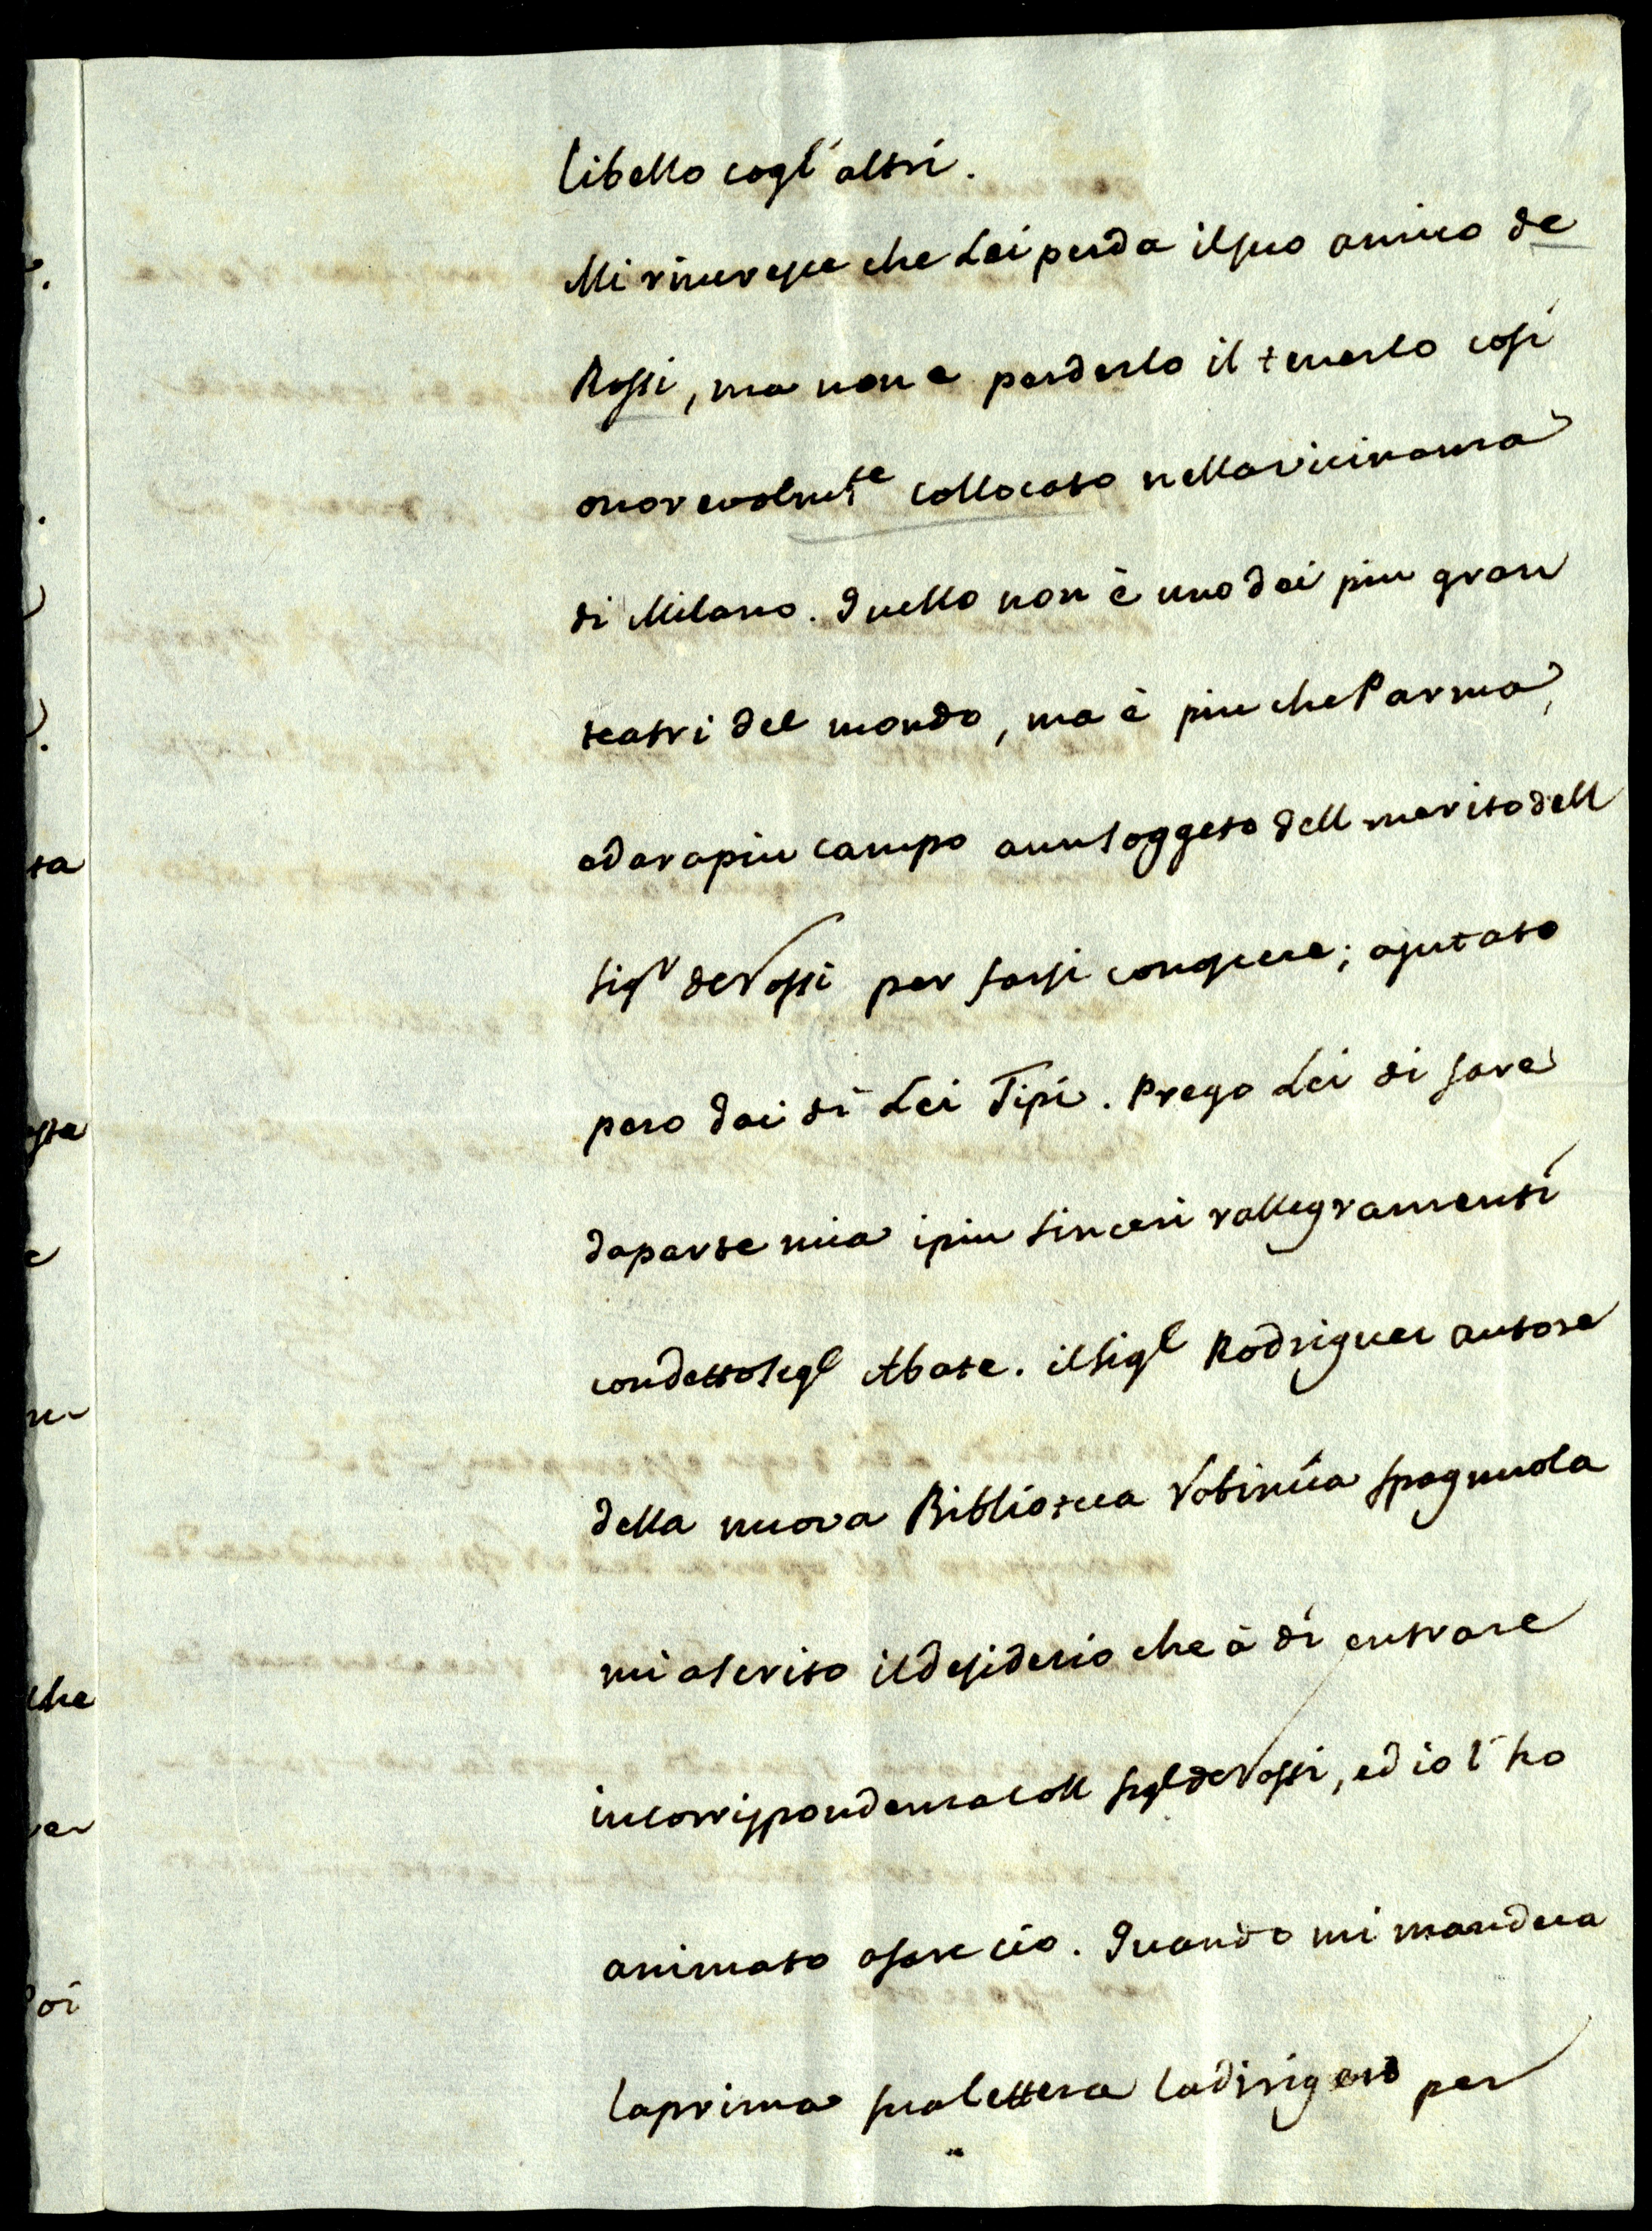 libello cogl'altri.
Mi rincresce che Lei perda il suo amico de
Rossi, ma non e perderlo il tenerlo cosi
onorevolmte collocato nella vicinanza
di Milano. Quello non è uno dei piu gran
teatri del mondo, ma è piu che Parma,
e dara piu campo a un soggeto dell merito dell
Sigr de Rossi per farsi conoscere; ajutato
pero dai di Lei Tipi. Prego Lei di fare
da parte mia i piu sinceri rallegramenti
con detto Sigl Abate. il Sigl Rodriguez autore
della nuova Biblioteca Rabinica spagnuola
mi a scrito il desiderio che à di entrare
in corrispondenza coll Sigl de Rossi, ed io l'ho
animato a fare cio. Quando mi mandera
la prima sua lettera la dirigerò per
ta
che
er
oi